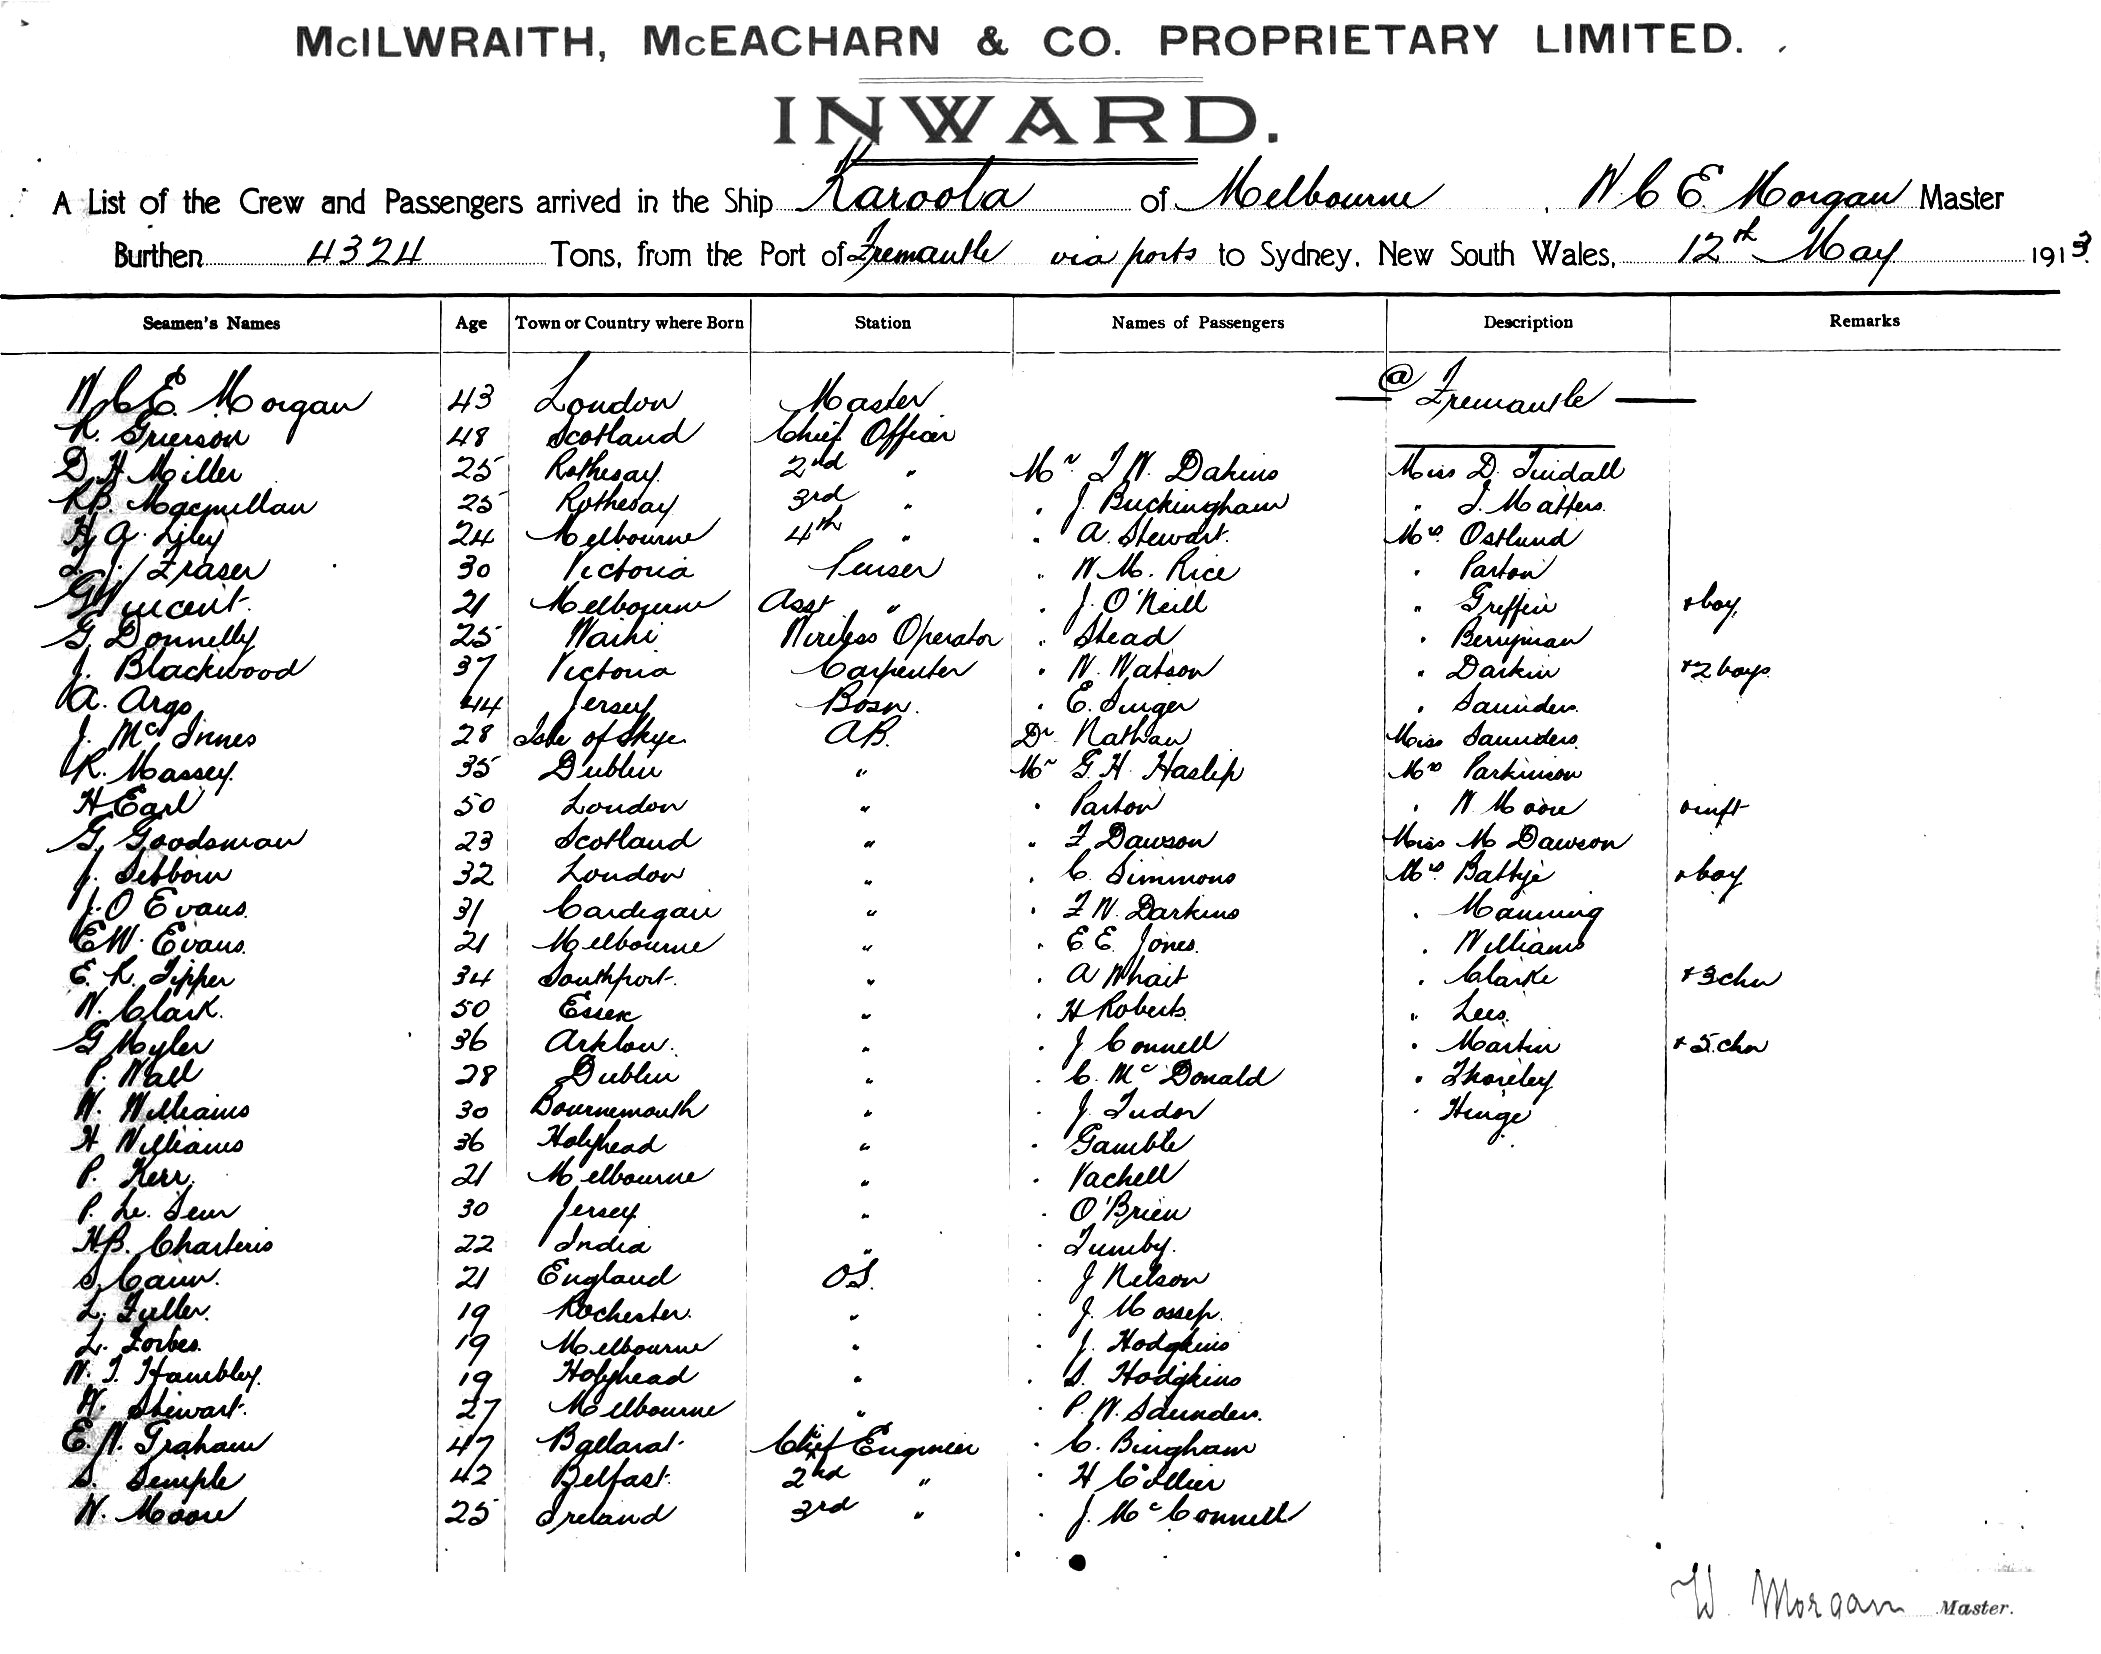 McILWRAITH, McEACHARN & CO. PROPRIETARY LIMITED.
INWARD.
A List of the Crew and Passengers arrived in the Ship Karoola of Melbourne, W C E. Morgan Master
Burthen 4324 Tons, from the Port of Fremantle via ports to Sydney, New South Wales, 12th May 1913
Seamen's Names Age Town or Country where Born Station Names of Passengers Description Remarks
W C E. Morgan 43 London Master @ Fremantle
R. Grierson 48 Scotland Chief Officer
D. H Miller 25 Rothesay. 2nd " Mr T W. Dakins Miss D. Tindall
R.B. Macmillan 25 Rothesay 3rd " " J. Buckingham " J. Matters.
H. A. Liley 24 Melbourne 4th " " A. Stewart. Mrs Ostlund
J. Fraser 30 Victoria Purser " W. M. Rice " Parton
G Vincent. 21 Melbourne Asst " " J. O'Neill " Griffin & boy.
G. Donnelly 25 Waihi Wireless Operator " Stead " Berryman
J. Blackwood 37 Victoria Carpenter " W. Watson " Darkin & 2 boys
A. Argo 44 Jersey Bosn. " E. Singer " Saunders.
J. McInnes 28 Isle of Skye A.B. Dr Nathan Miss Saunders.
R. Massey. 35 Dublin " Mr G. H. Haslip Mrs Parkinson
H Earl 50 London " " Parton " W. Moore & inft
G. Goodsman 23 Scotland " " F Dawson Miss M Dawson
J. Sebborn 32 London " " C. Simmons Mrs Battye & boy
J. O Evans. 31 Cardigan " " F W. Darkins " Manning
E W. Evans. 21 Melbourne " " E E. Jones. " Williams
E. R. Tipper 34 Southport. " " A Whait " Clarke & 3 chn
W. Clark. 50 Essex " " H Roberts. " Lees.
G Myler 36 Arklow. " " J Connell " Martin & 5. chn
P. Wall 28 Dublin " " C. McDonald " Thoreley
W. Williams 30 Bournemouth " " J. Tudor " Hinge
H Williams 36 Holyhead " " Gamble
P. Kerr. 21 Melbourne " " Vachell
P. Le. Seur 30 Jersey " " O'Brien
H.B. Charteris 22 India " " Tumby.
S. Cann. 21 England O.S. " J Nelson
L. Fuller. 19 Rochester. " " J. Mossep.
L. Forbes. 19 Melbourne " " J. Hodgkins
W. T. Hambley. 19 Holyhead " " S. Hodgkins
W. Stewart. 27 Melbourne " " P. W. Saunders.
E. W. Graham 47 Ballarat. Chief Engineer " C. Bingham
S. Semple 42 Belfast. 2nd " " H Collier
W. Moore 25 Ireland 3rd " " J. McConnell
W Morgan Master.